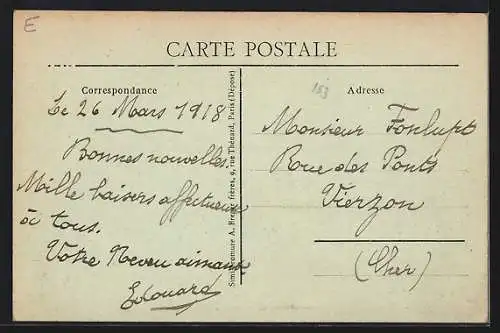 E
CARTE POSTALE
Correspondance
Le 26 Mars 1918
Bonnes nouvelles.
Mille baisers affectueux
à tous.
Votre Neveu aimant
Edouard
A. Breger frères, 9, rue Thénard, Paris (Déposé)
153
Adresse
Monsieur Fonlupt
Rue des Ponts
Vierzon
(Cher)